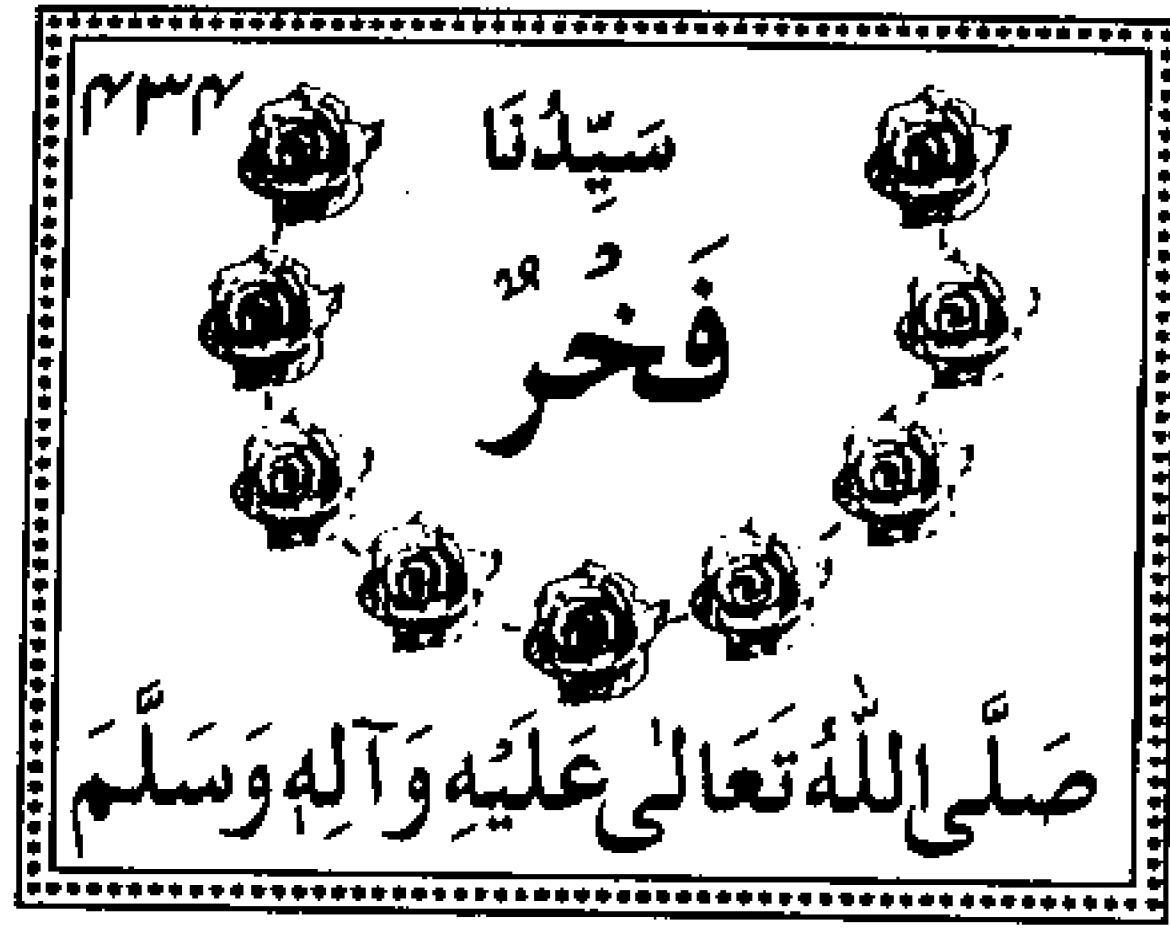 ۴۳۴
سَيِّدُنَا
فَخْرٌ
صَلَّى اللّٰهُ تَعَالٰى عَلَيْهِ وَآلِهٖ وَسَلَّمَ